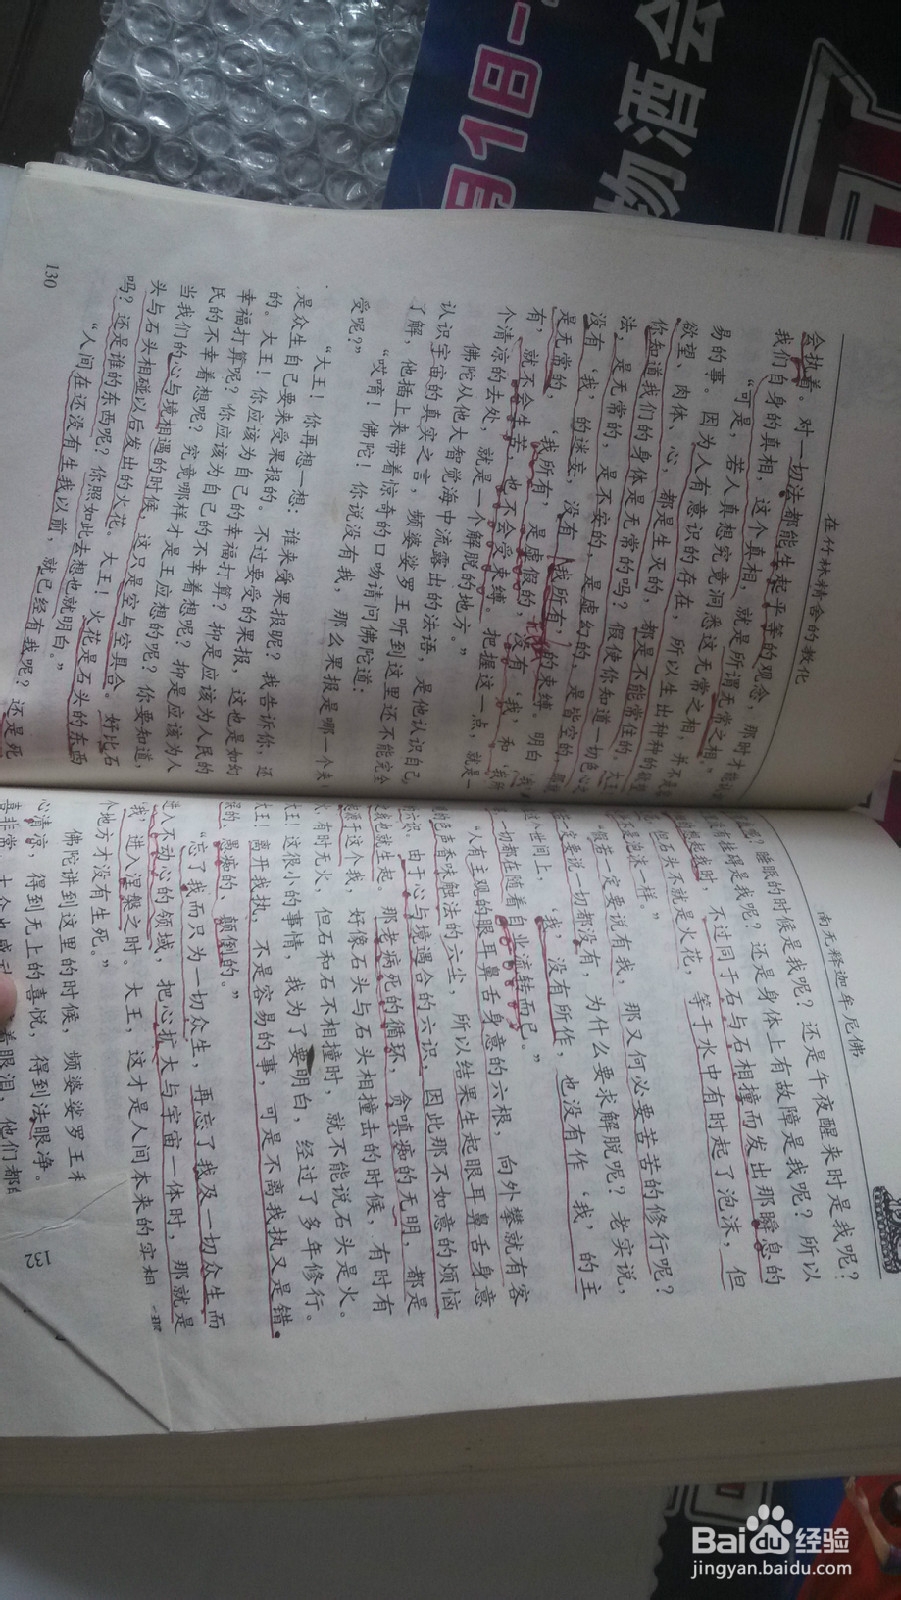 月1日-
物酒会
在竹林精舍的教化
会执着。对一切法都能生起平等的观念，那时才能认
我们自身的真相，这个真相，就是所谓无常之相。”
“可是，若人真想究竟洞悉这无常之相，并不是
易的事。因为人有意识的存在，所以生出种种的
欲望、肉体、心，都是生灭的，都是不能常住的。大王
你知道我们的身体是无常的吗？假使你知道一切色心
法，是无常的，是不安的，是虚幻的，是皆空的，
没有‘我’的迷妄，没有‘我所有’的束缚。明白
是无常的，‘我所有’是虚假的，没有‘我’和‘我所
有’，就不会生苦，也不会受束缚。把握这一点，就是一
个清凉的去处，就是一个解脱的地方。”
佛陀从他大智觉海中流露出的法语，是他认识自己，
认识宇宙的真实之言，频婆娑罗王听到这里还不能完全
了解，他插上来带着惊奇的口吻请问佛陀道：
“哎唷！佛陀！你说没有我，那么果报是哪一个去
受呢？”
“大王！你再想一想：谁来受果报呢？我告诉你，还
是众生自己要来受果报的。不过要受的果报，这也是如幻
的。大王！你应该为自己的幸福打算？抑是应该为人民的
幸福打算呢？你应该为自己的不幸着想呢？抑是应该为人
民的不幸着想呢？究竟哪样才是王应想的呢？你要知道，
当我们的心与境相遇的时候，这只是空与空具合。好比石
头与石头相碰以后发出的火花。大王！火花是石头的东西
吗？还是谁的东西呢？你照如此去想也就明白。”
“人间在还没有生我以前，就已经有我呢？还是死
130
南无释迦牟尼佛
睡眠的时候是我呢？还是午夜醒来时是我呢？
挂碍是我呢？还是身体上有故障是我呢？所以
想起我时，不过同于石与石相撞而发出那瞬息的
但石头不就是火花，等于水中有时起了泡沫，但
是泡沫一样。”
假若一定要说有我，那又何必要苦苦的修行呢？
定要说一切都没有，为什么要求解脱呢？老实说，
世间上，‘我’没有所作，也没有作‘我’的主
一切都在随着自业流转而已。”
“人有主观的眼耳鼻舌身意的六根，向外攀就有客
的色声香味触法的六尘，所以结果生起眼耳鼻舌身意
的六识。由于心与境遇合的六识，因此那不如意的烦恼
也就生起。那老病死的循环，贪嗔痴的无明，都是
源于这个我，好像石头与石头相撞击的时候，有时有
火，有时无火，但石和石不相撞时，就不能说石头是火。
大王！这很小的事情，我为了要明白，经过了多年修行。
大王！离开我执，不是容易的事，可是不离我执又是错
误的、愚痴的、颠倒的。”
“忘了我而只为一切众生，再忘了我及一切众生而
进入不动心的领域，把心扩大与宇宙一体时，那就是
‘我’进入涅槃之时。大王，这才是人间本来的实相，那
个地方才没有生死。”
佛陀讲到这里的时候，频婆娑罗王
心清凉，得到无上的喜悦，得到法眼净。
着眼泪，他们都
132
Baidu经验
jingyan.baidu.com